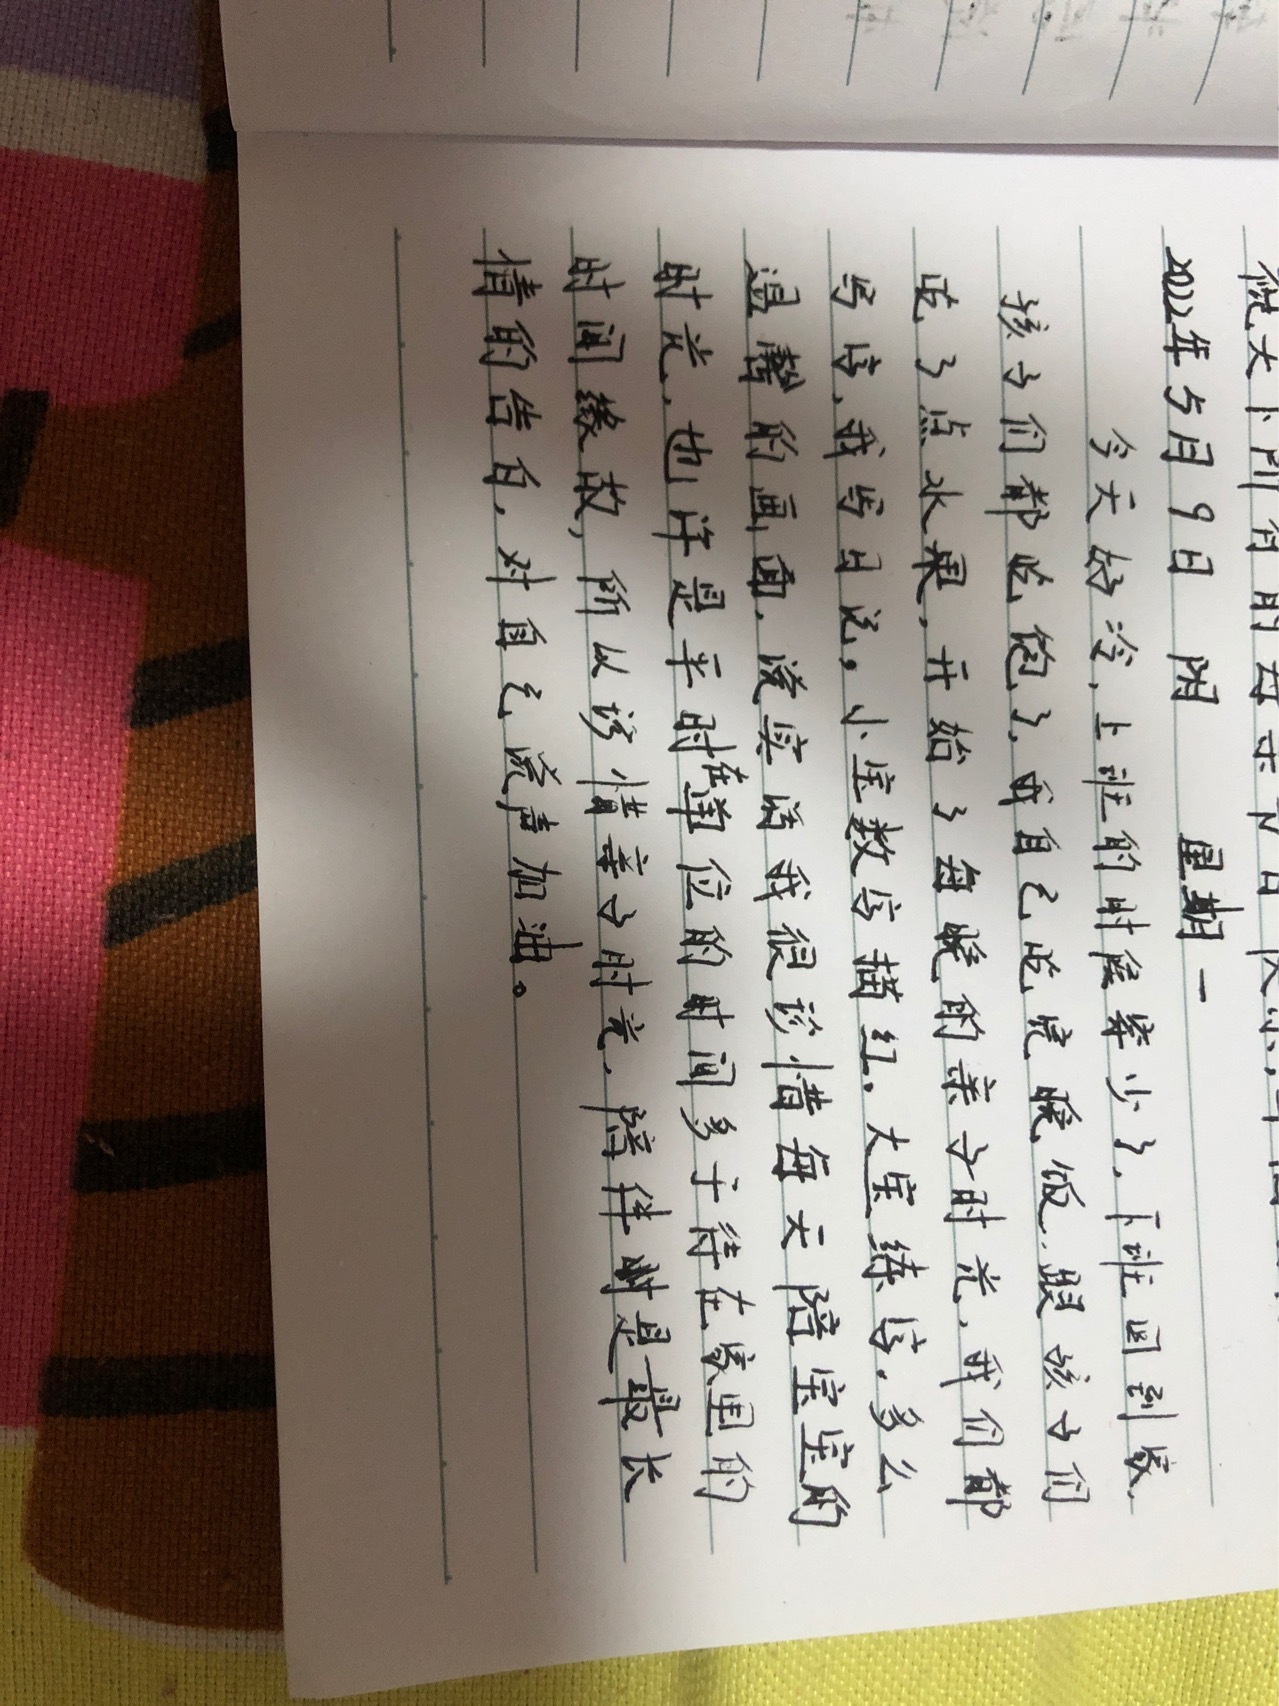 天下所有的母亲节日快乐,
2022年5月9日 阴 星期一
今天好冷,上班的时候寥少了,下班回到家,
孩子们都吃饱了,我自己吃完晚饭,跟孩子们
吃了点水果,开始了每晚的亲子时光,我们都
写字,我写日记。小宝数字描红,大宝练字,多么
温馨的画面,说实话我很珍惜每天陪宝宝的
时光,也许是平时在单位的时间多于待在家里的
时间缘故,所以珍惜亲子时光,陪伴是最长
情的告白,对自己说声加油。